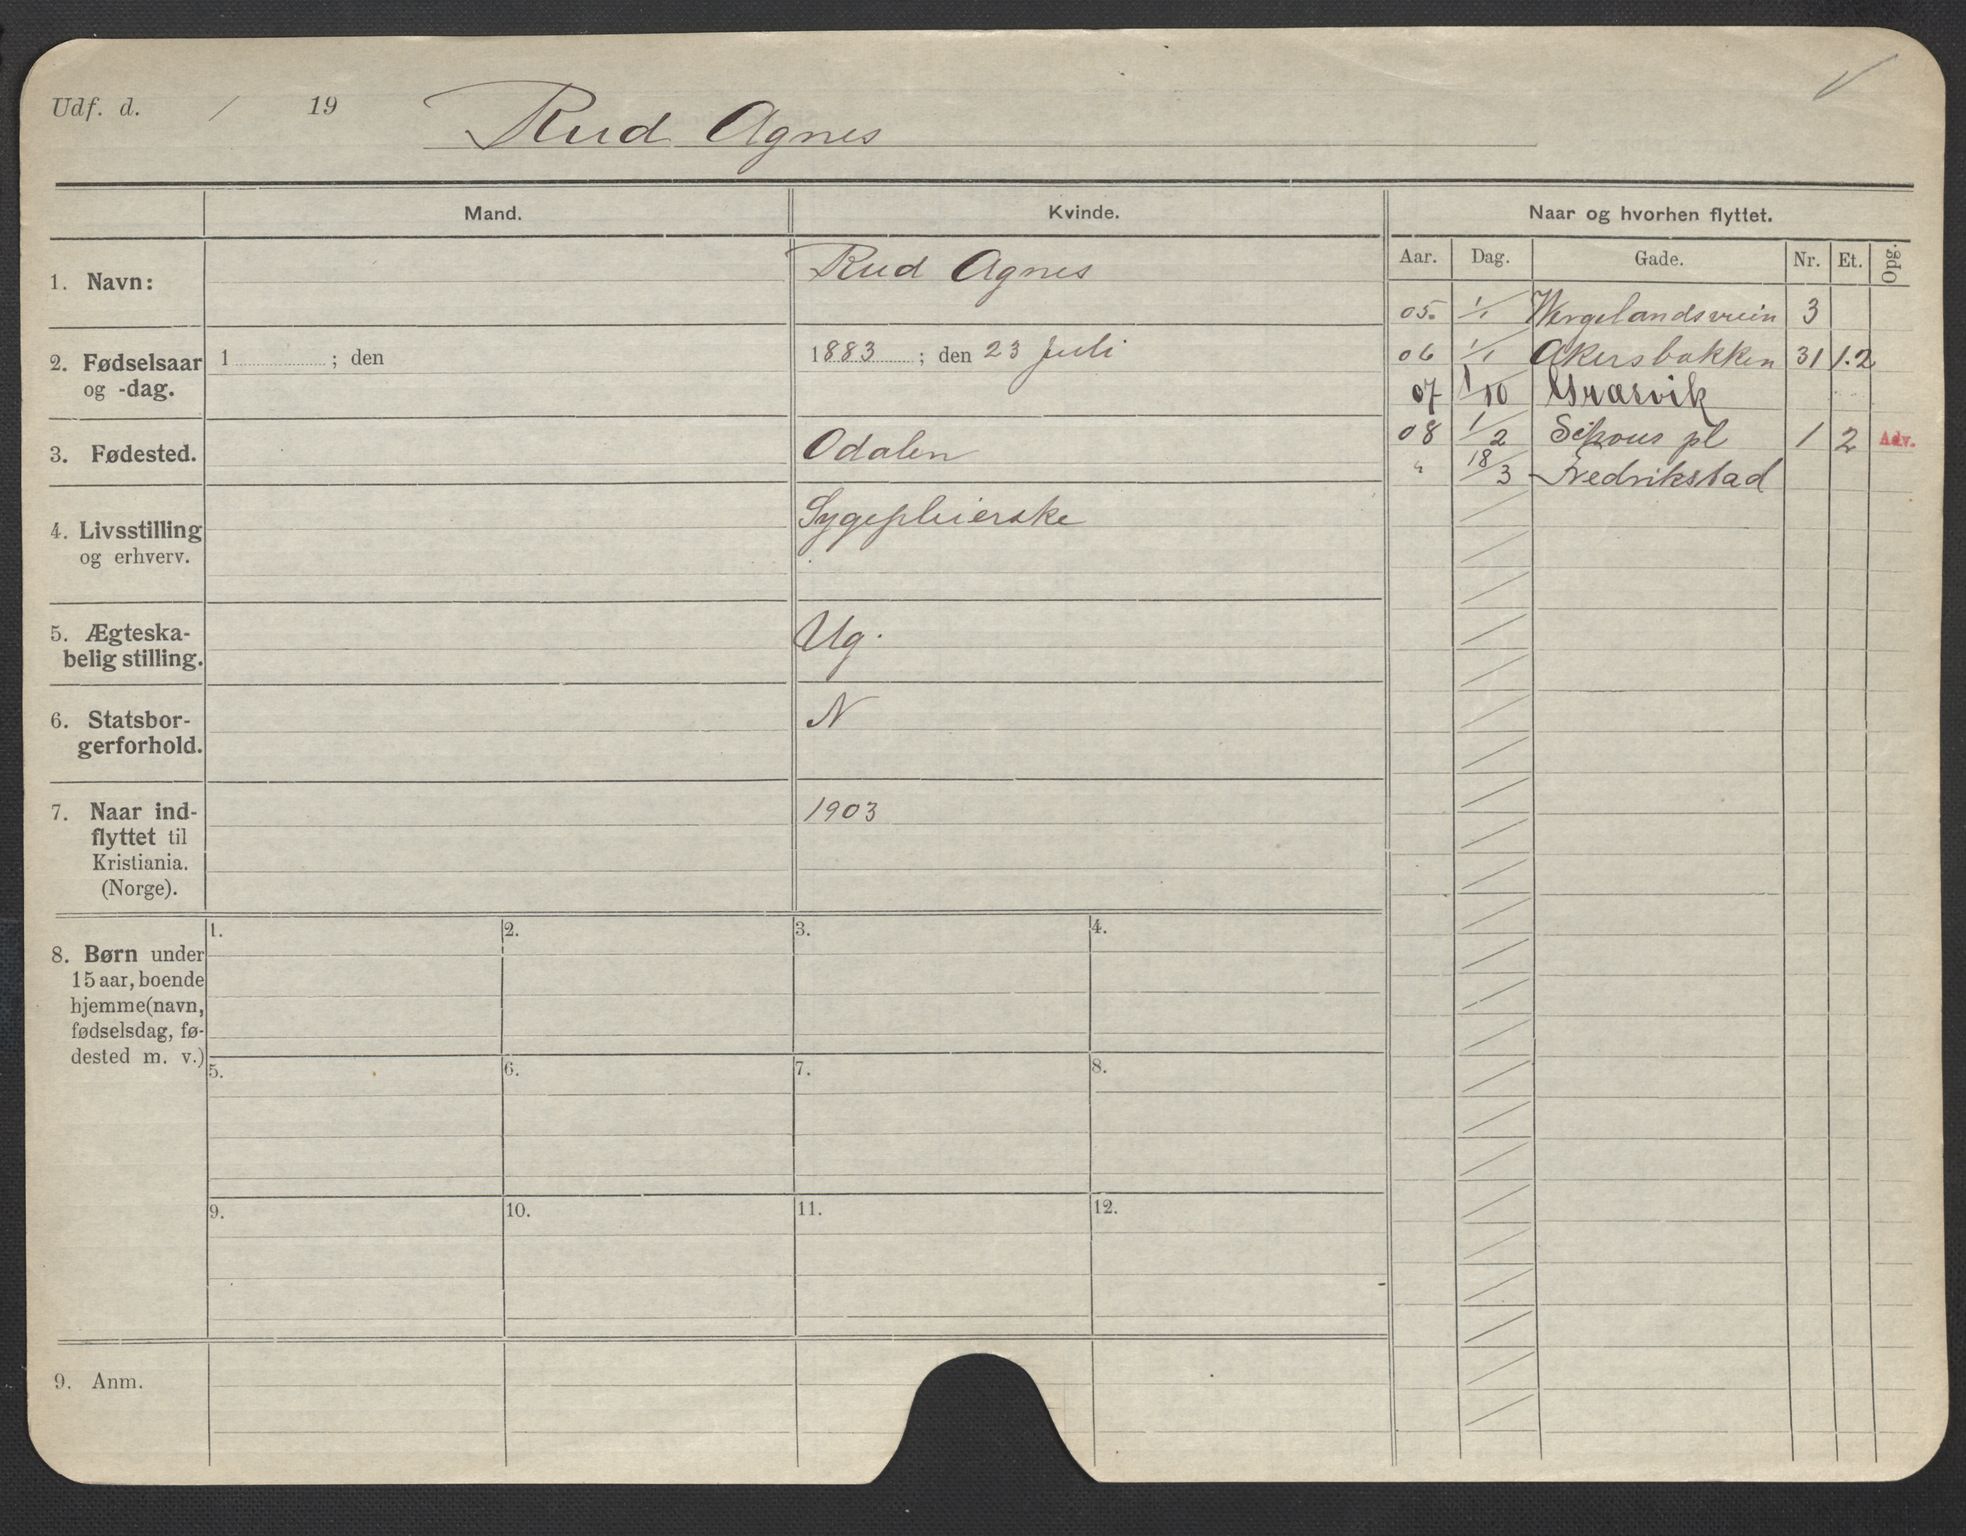 Udf. d. / 19 Rud Agnes
Mand. Kvinde. Naar og hvorhen flyttet.
Aar. Dag. Gade. Nr. Et. Opg.
1. Navn: Rud Agnes
2. Fødselsaar og -dag. 1 ; den 1883 ; den 23 Juli
3. Fødested. Odalen
4. Livsstilling og erhverv. Sygepleierske
5. Ægteska-
belig stilling. Ug.
6. Statsbor-
gerforhold. N
7. Naar ind-
flyttet til
Kristiania.
(Norge). 1903
05. 1/1 Wergelandsveien 3
06 1/1 Akersbakken 31 1.2
07 1/10 Græsvik
08 1/2 Schous pl 1 2 Adv.
" 18/3 Fredrikstad
8. Børn under
15 aar, boende
hjemme (navn,
fødselsdag, fø-
dested m. v.)
1. 2. 3. 4.
5. 6. 7. 8.
9. 10. 11. 12.
9. Anm.